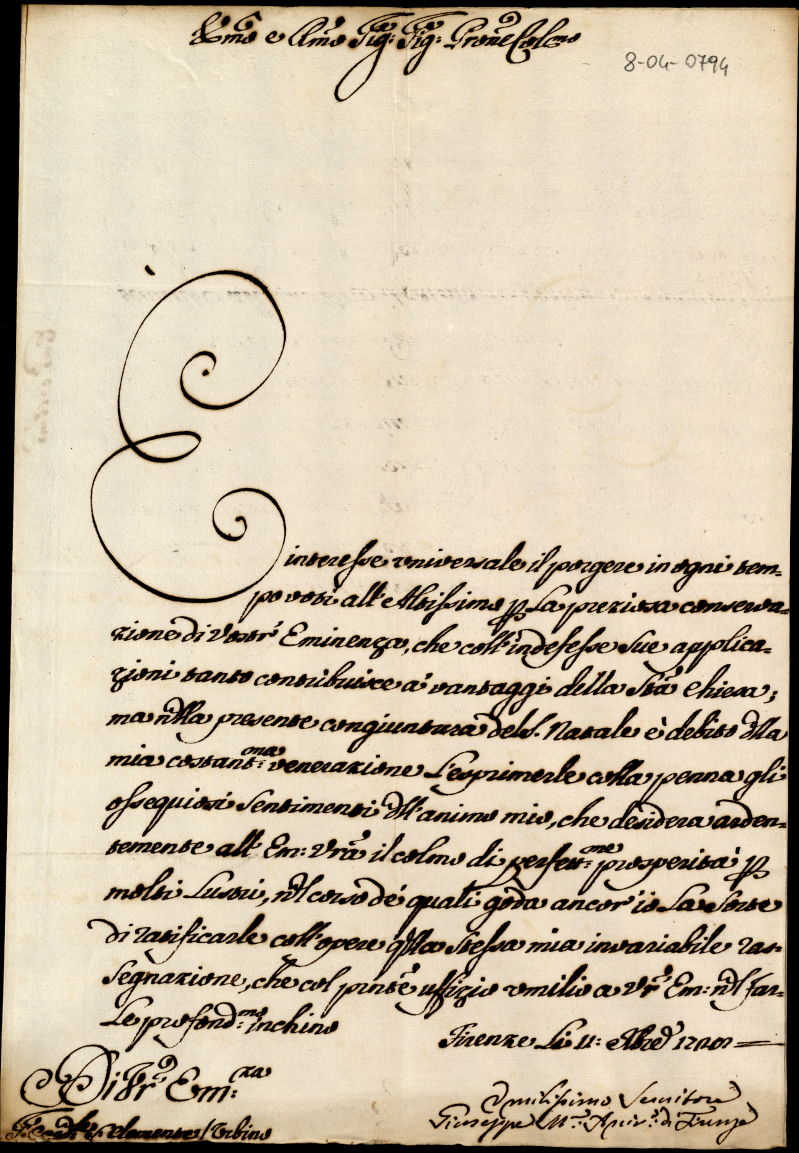 Em̃o e Rm̃o Sig: Sig: Prone Col̃mo
8-04-0794
È interesse vniversale il porgere in ogni tem=
po voti all'Altissimo p̱ La preziosa conserva=
zione di Vostr' Eminenza, che coll'indefesse sue applica=
zioni tanto contribuisce a' vantaggi della Stã Chiesa;
ma nlla presente congiuntura del S. Natale è debito dlla
mia costant:ma venerazione L'esprimerle colla penna gli
ossequiosi sentimenti dll'animo mio, che desidera arden=
temente all' Em: Vrã il colmo di perfett:me prosperità p̱
molti Lustri, nl corso de' quali goda ancor'io La sorte
di ratificarle coll'opere qlla stessa mia invariabile ras=
segnazione, che col pnte uffizio vmilio a Vr̃ Em: nl far=
Le profond:mo inchino
Firenze Li 11: Xbre
Di Vr̃ Em:za
S. Clemente / Vrbino
Vmilissimo Servitore
Giuseppe M.a Arciv.o di Firenze